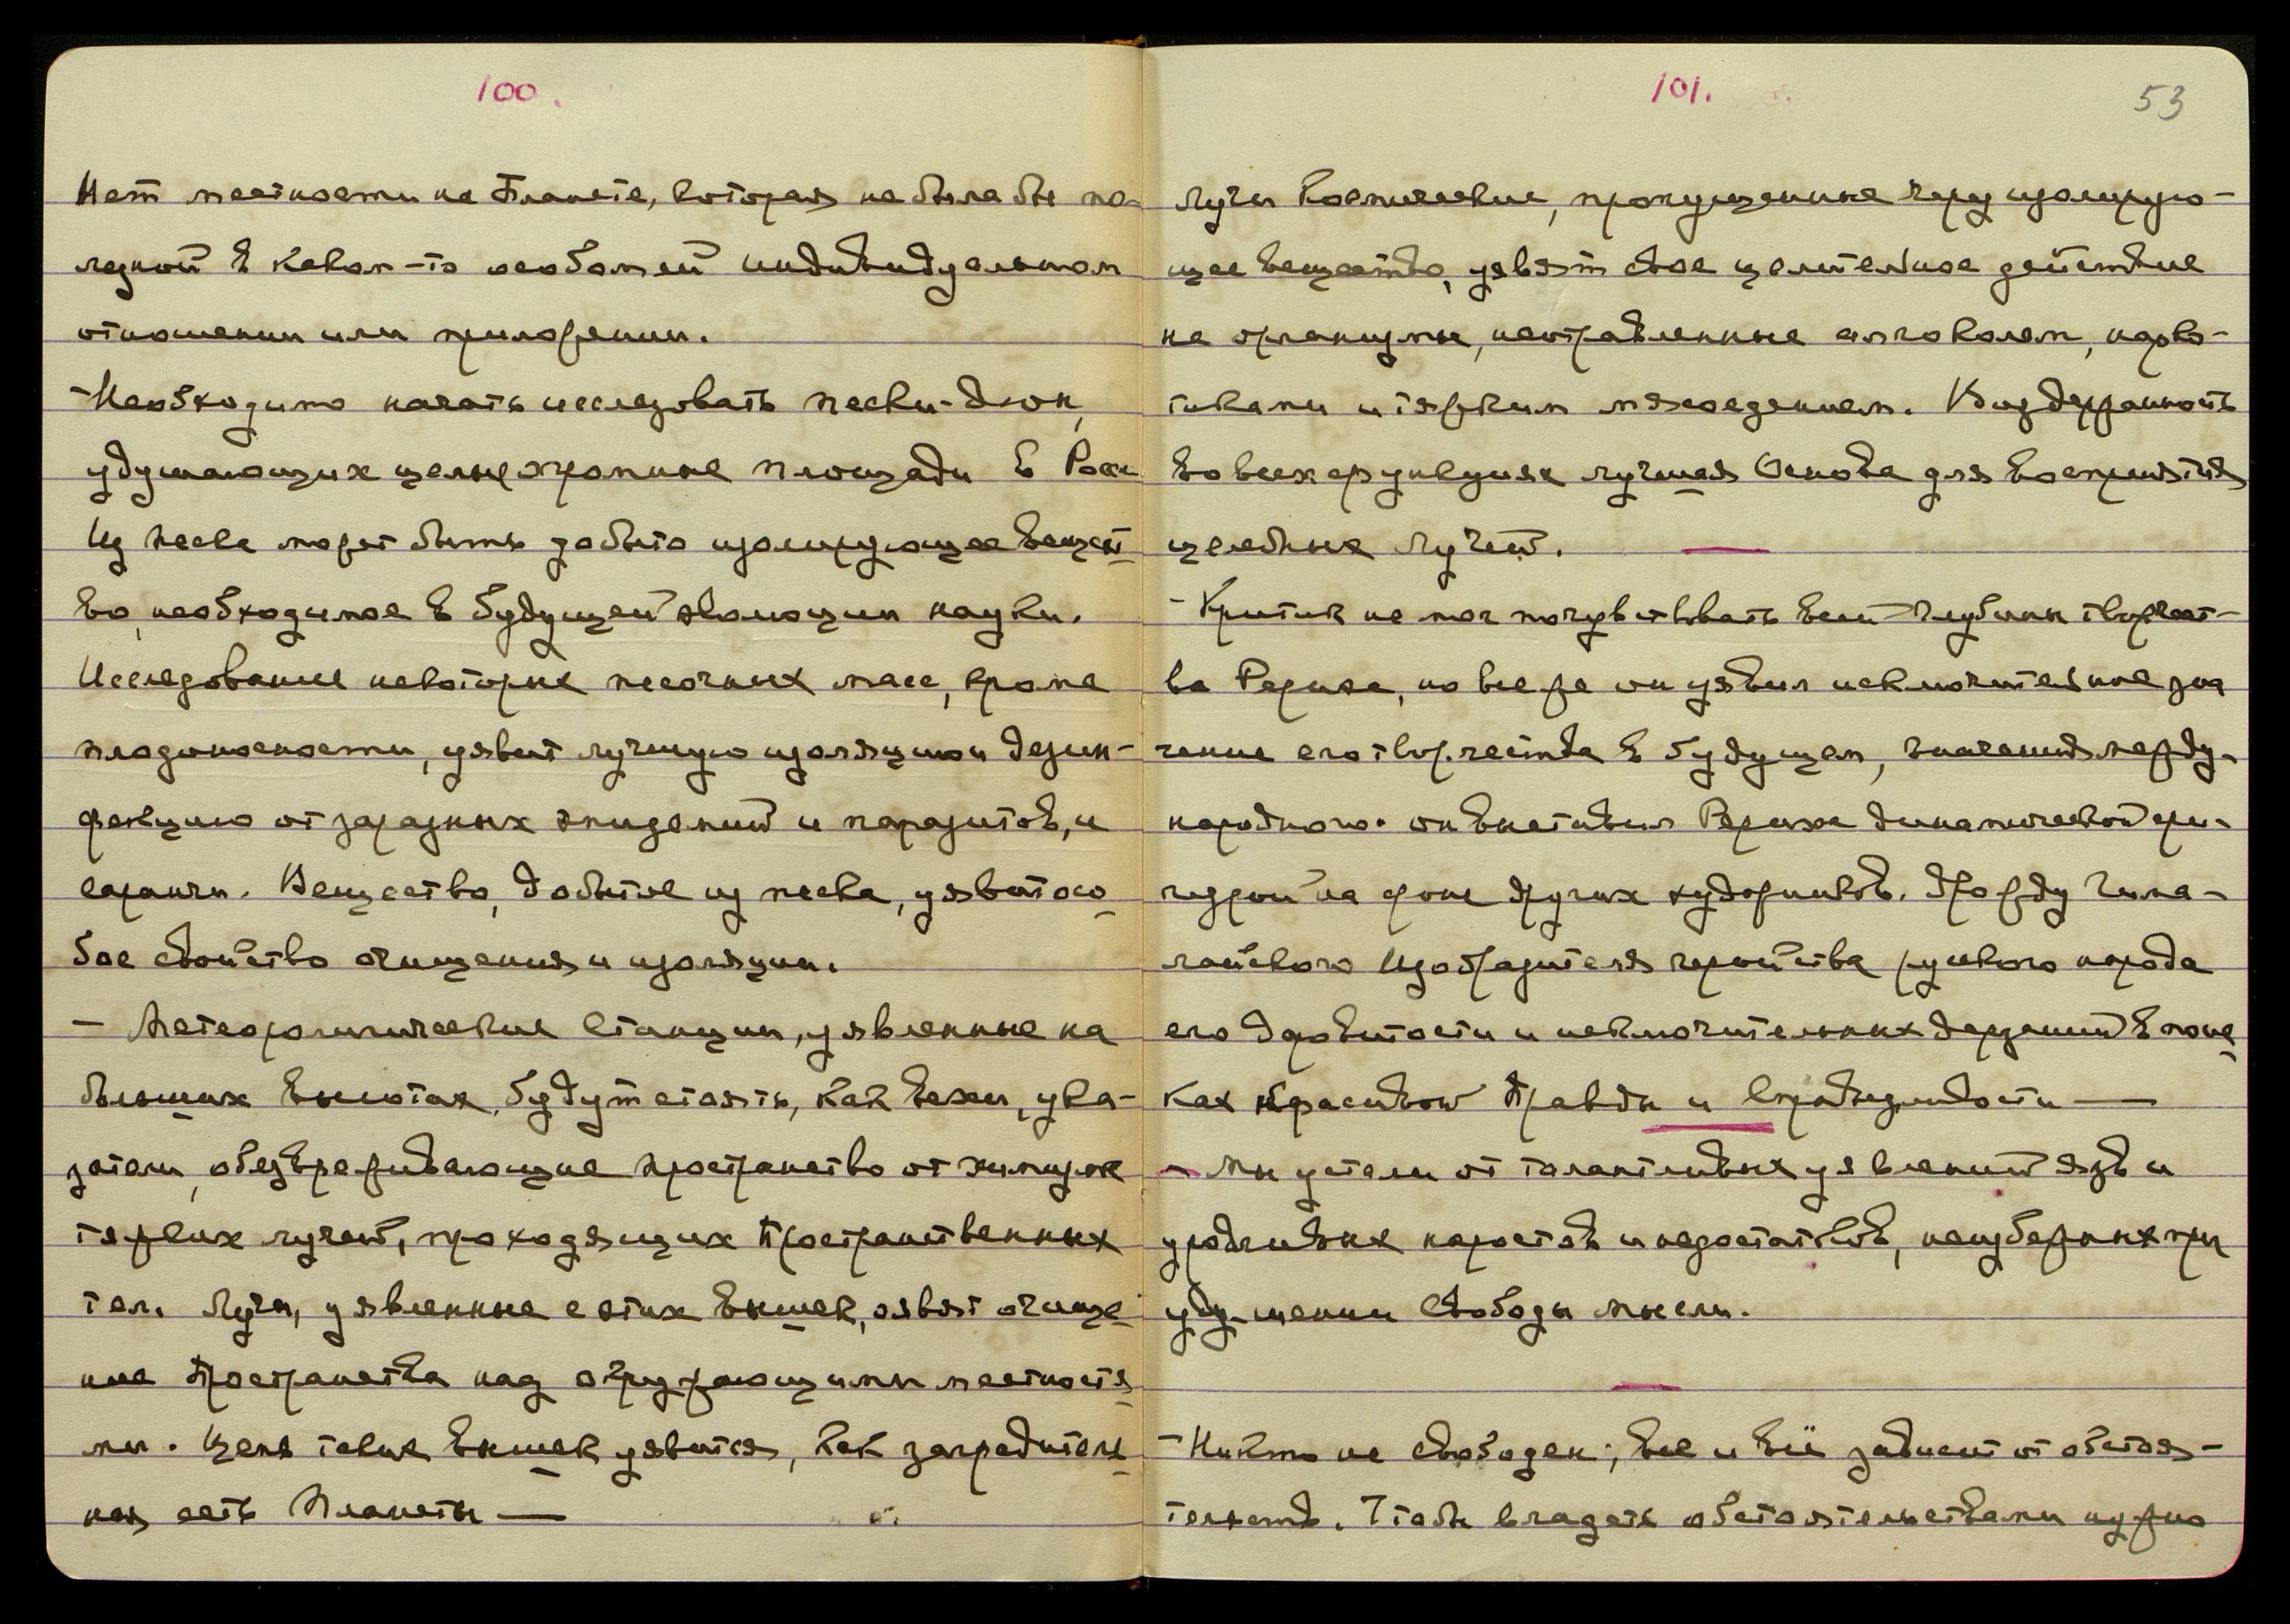 100.
Нет местности на Планете, которая не была бы по-
лезной в каком-то особом ей индивидуальном
отношении или приложении.
-Необходимо начать исследовать пески-дюн,
удушающих целые огромные площади в Росси
Из песка может быть добыто изолирующее вещест
во, необходимое в будущей эволюции науки.
Исследование некоторых песочных масс, кроме
плодоносности, уявит лучшую изоляцию и дезин-
фекцию от заразных эпидемий и паразитов, и
саранчи. Вещество, добытое из песка, уявит осо
бое свойство очищения и изоляции.
- Метеорологические станции, уявленные на
больших высотах, будут стоять, как вехи, ука-
затели, обезвреживающие пространство от химизма
тяжких лучей, проходящих Пространственных
тел. Лучи, уявленные с этих вышек, оявят очище
ние Пространства над окружающими местностя
ми. Цепь таких вышек уявится, как заградитель
ная сеть Планеты —
101.
53
Лучи Космические, пропущенные через изолирую-
щее вещество, уявят свое целительное действие
на организмы, неотравленные алкоголем, нарко-
тиками и тяжким мясоедением. Воздержанность
во всех функциях лучшая Основа для восприятия
целебных Лучей.
-Критик не мог почувствовать всей глубины творчест-
ва Рериха, но все же он уявил исключительное зна
чение его творчества в будущем, значения между-
народного. он выставил Рериха динамической фи-
гурой на фоне других художников.
лайского Изобразителя геройства русского народа
его даровитости и исключительных дерзаний в
как красивой Правды и Справедливости —
- Мы устали от талантливых уявлений язв и
уродливых наростов и недостатков, неизбежных при
удушении Свободы мысли.
-Никто не свободен; все и всё зависит от обстоя-
тельств. Чтобы владеть обстоятельствами нужно